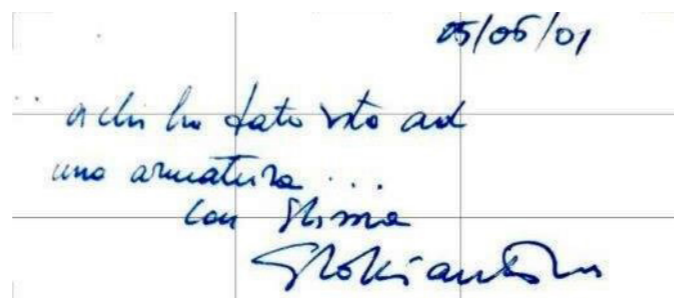 05/06/01
a chi ha dato vita ad
una armatura...
con stima